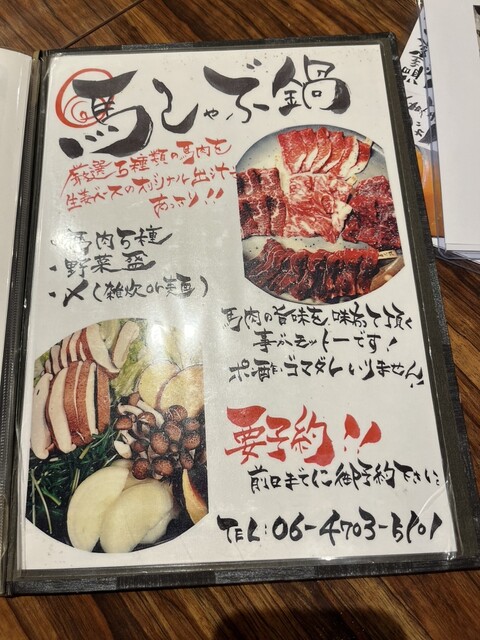 馬しゃぶ鍋
厳選5種類の馬肉を
生姜ベースのオリジナル出汁で
あっさり!!
・馬肉5種
・野菜盛
・〆(雑炊or麺)
馬肉の旨味を味わって頂く
事がモットーです!
ポン酢・ゴマダレいりません!
要予約!!
前日までに御予約下さい。
TEL:06-4703-5101